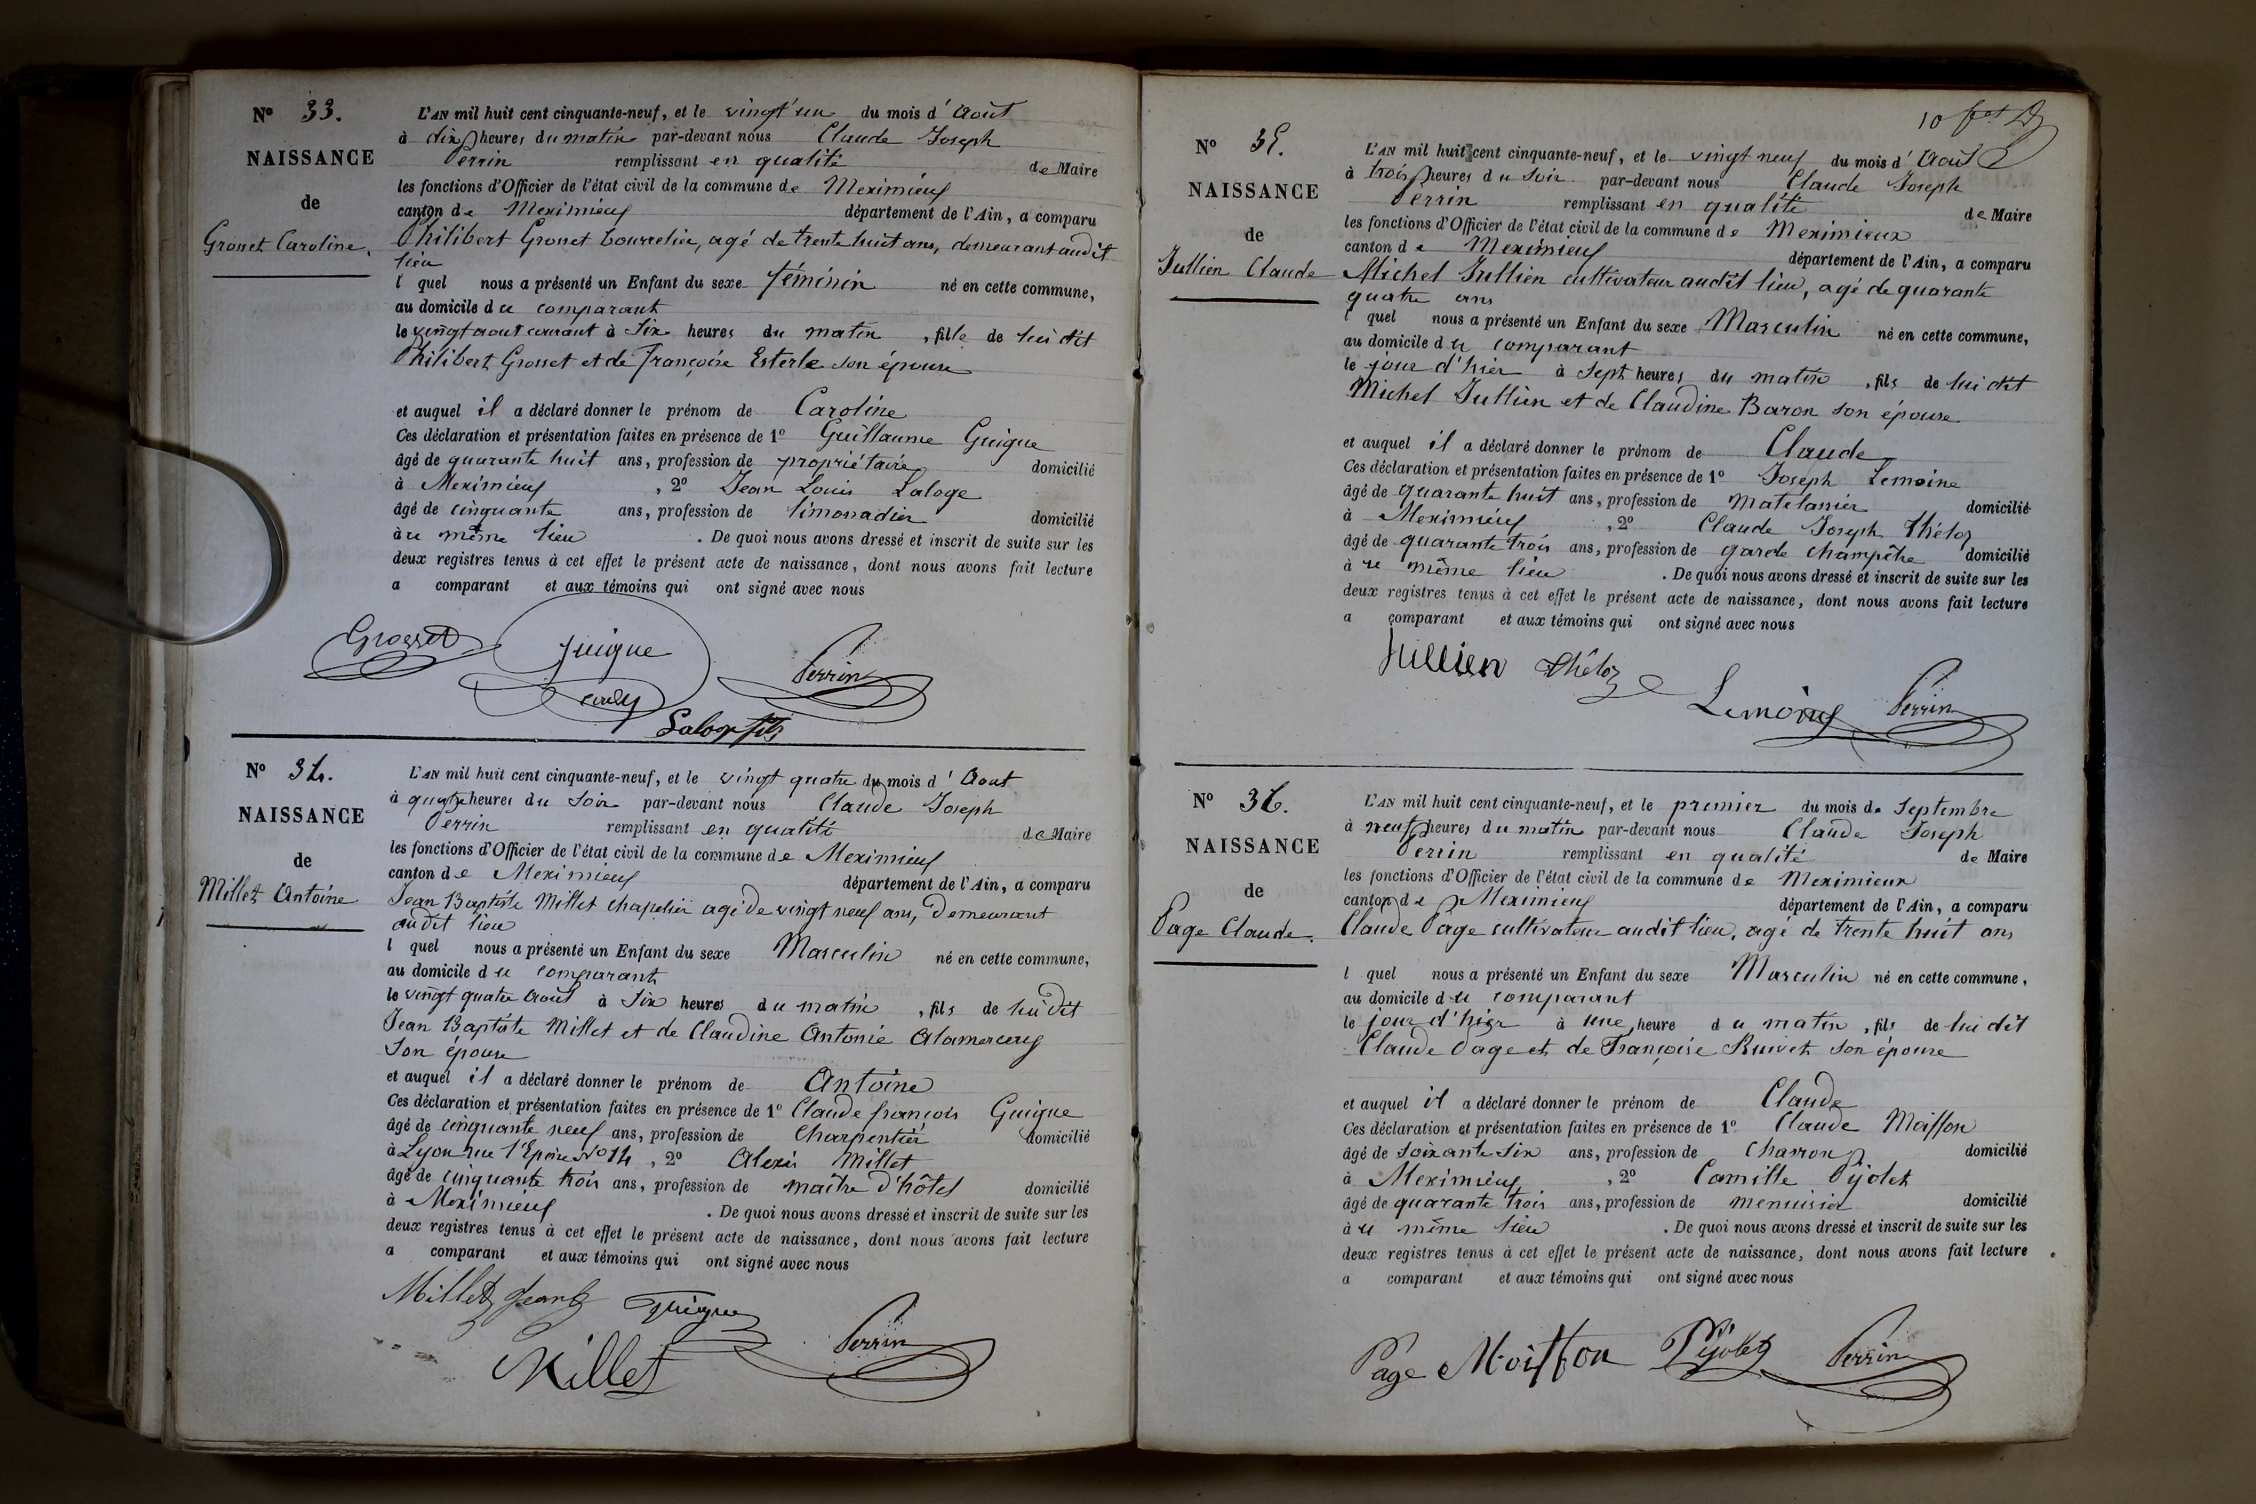 Nº 33.
NAISSANCE
de
Grosset Caroline.
L'AN mil huit cent cinquante-neuf, et le vingt un du mois d' Aout
à dix heures du matin par-devant nous Claude Joseph
Perrin remplissant en qualité de Maire
les fonctions d'Officier de l'état civil de la commune de Meximieux
canton de Meximieux département de l'Ain, a comparu
Philibert Grosset bourrelier, agé de trente huit ans, demeurant audit
lieu
l quel nous a présenté un Enfant du sexe féminin né en cette commune,
au domicile du comparant
le vingt aout courant à six heures du matin, fille de lui dit
Philibert Grosset et de Françoise Esterle son épouse
et auquel il a déclaré donner le prénom de Caroline
Ces déclaration et présentation faites en présence de 1º Guillaume Guigue
âgé de quarante huit ans, profession de propriétaire domicilié
à Meximieux, 2º Jean Louis Laloge
âgé de cinquante ans, profession de limonadier domicilié
à u même lieu. De quoi nous avons dressé et inscrit de suite sur les
deux registres tenus à cet effet le présent acte de naissance, dont nous avons fait lecture
a comparant et aux témoins qui ont signé avec nous
Grosset Guigue Perrin
Laloge fils
Nº 34.
NAISSANCE
de
Millet Antoine
L'AN mil huit cent cinquante-neuf, et le vingt quatre du mois d' Aout
à quatre heures du soir par-devant nous Claude Joseph
Perrin remplissant en qualité de Maire
les fonctions d'Officier de l'état civil de la commune de Meximieux
canton de Meximieux département de l'Ain, a comparu
Jean Baptiste Millet chapelier agé de vingt neuf ans, demeurant
audit lieu
l quel nous a présenté un Enfant du sexe Masculin né en cette commune,
au domicile du comparant
le vingt quatre Aout à six heures du matin, fils de lui dit
Jean Baptiste Millet et de Claudine Antonie Alamercery
son épouse
et auquel il a déclaré donner le prénom de Antoine
Ces déclaration et présentation faites en présence de 1º Claude françois Guigue
âgé de cinquante neuf ans, profession de Charpentier domicilié
à Lyon rue l'Epine Nº 14, 2º Alexis Millet
âgé de cinquante trois ans, profession de maître d'hôtel domicilié
à Meximieux. De quoi nous avons dressé et inscrit de suite sur les
deux registres tenus à cet effet le présent acte de naissance, dont nous avons fait lecture
a comparant et aux témoins qui ont signé avec nous
Millet Jean Bte Guigue
Millet Perrin
10
Nº 35.
NAISSANCE
de
Jullien Claude
L'AN mil huit cent cinquante-neuf, et le vingt neuf du mois d' Aout
à trois heures du soir par-devant nous Claude Joseph
Perrin remplissant en qualité de Maire
les fonctions d'Officier de l'état civil de la commune de Meximieux
canton de Meximieux département de l'Ain, a comparu
Michel Jullien cultivateur audit lieu, agé de quarante
quatre ans
l quel nous a présenté un Enfant du sexe Masculin né en cette commune,
au domicile du comparant
le jour d'hier à sept heures du matin, fils de lui dit
Michel Jullien et de Claudine Baron son épouse
et auquel il a déclaré donner le prénom de Claude
Ces déclaration et présentation faites en présence de 1º Joseph Lemoine
âgé de quarante huit ans, profession de matelassier domicilié
à Meximieux, 2º Claude Joseph Théloz
âgé de quarante trois ans, profession de garde champêtre domicilié
à u même lieu. De quoi nous avons dressé et inscrit de suite sur les
deux registres tenus à cet effet le présent acte de naissance, dont nous avons fait lecture
a comparant et aux témoins qui ont signé avec nous
Jullien Théloz
Lemoine Perrin
Nº 36.
NAISSANCE
de
Page Claude.
L'AN mil huit cent cinquante-neuf, et le premier du mois de Septembre
à neuf heures du matin par-devant nous Claude Joseph
Perrin remplissant en qualité de Maire
les fonctions d'Officier de l'état civil de la commune de Meximieux
canton de Meximieux département de l'Ain, a comparu
Claude Page cultivateur audit lieu, agé de trente huit ans
l quel nous a présenté un Enfant du sexe Masculin né en cette commune,
au domicile du comparant
le jour d'hier à une heure du matin, fils de lui dit
Claude Page et de Françoise Ruivet son épouse
et auquel il a déclaré donner le prénom de Claude
Ces déclaration et présentation faites en présence de 1º Claude Moisson
âgé de soixante six ans, profession de Charron domicilié
à Meximieux, 2º Camille Pijolet
âgé de quarante trois ans, profession de menuisier domicilié
à u même lieu. De quoi nous avons dressé et inscrit de suite sur les
deux registres tenus à cet effet le présent acte de naissance, dont nous avons fait lecture
a comparant et aux témoins qui ont signé avec nous
Page Moisson Pijolet Perrin